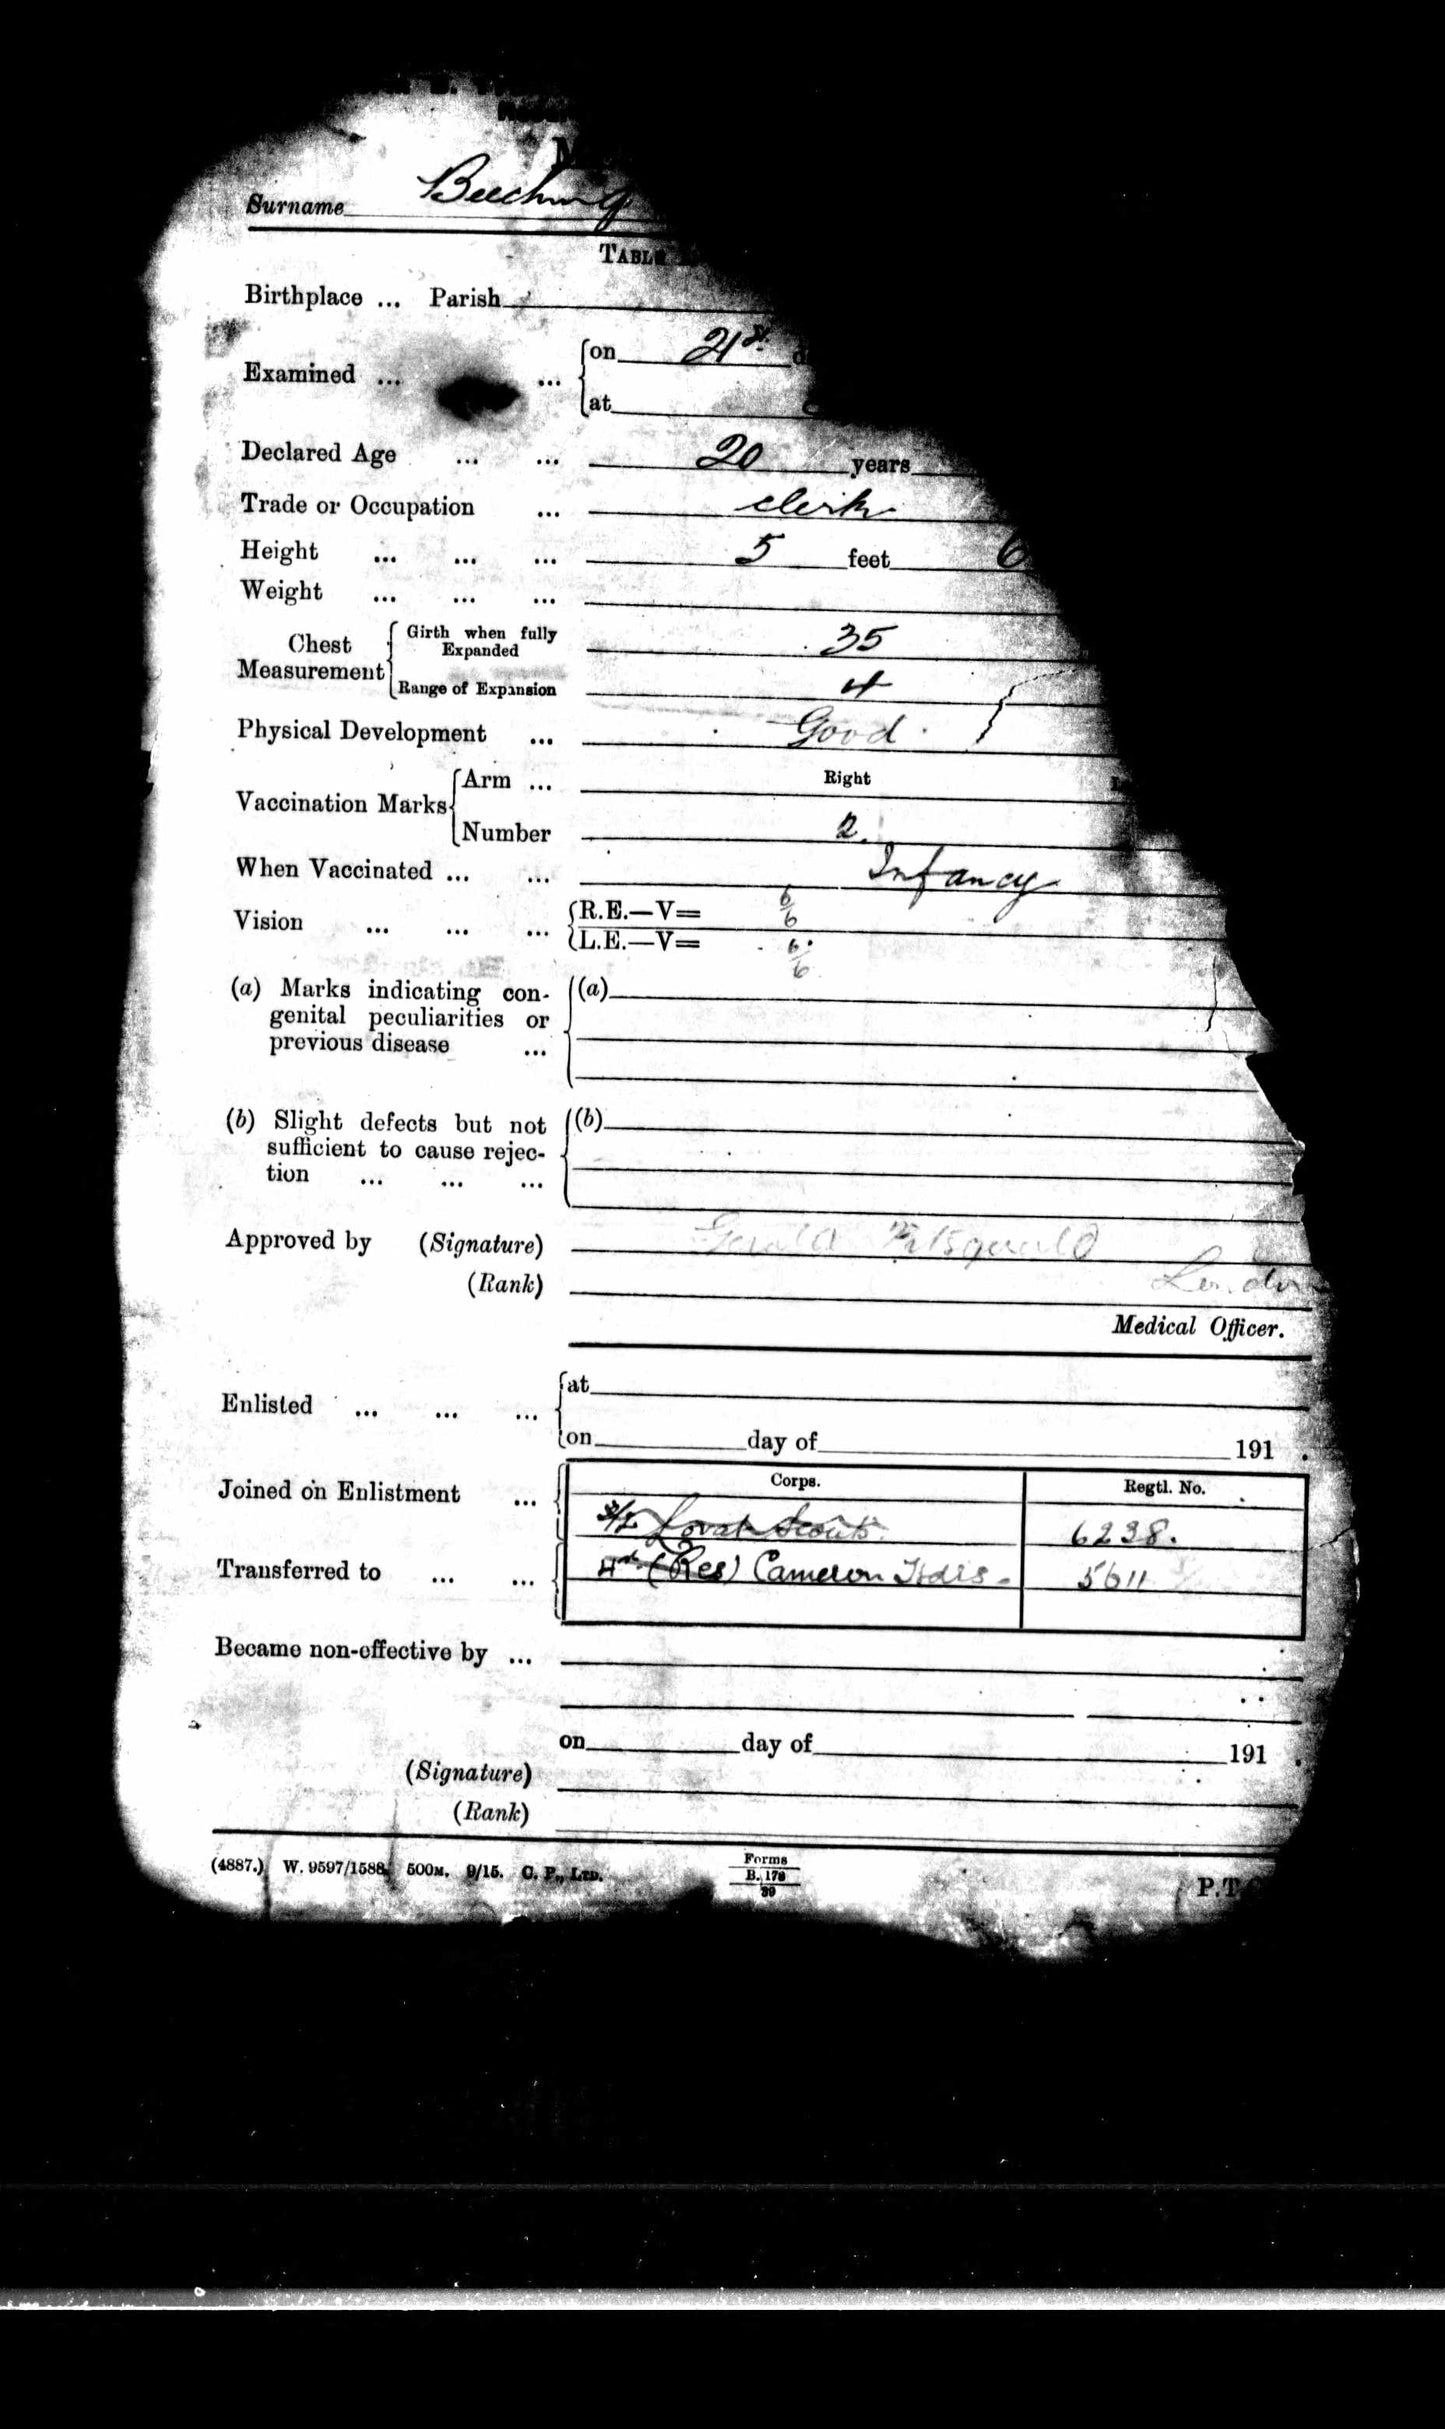 Surname Beeching
TABLE
Birthplace ... Parish
Examined ... ... on 21st
at
Declared Age ... ... 20 years
Trade or Occupation ... clerk
Height ... ... ... 5 feet 6
Weight ... ... ...
Chest Measurement Girth when fully Expanded 35
Range of Expansion 4
Physical Development ... Good.
Vaccination Marks Arm ... Right
Number 2.
When Vaccinated ... ... Infancy
Vision ... ... ... R.E.—V= 6/6
L.E.—V= 6/6
(a) Marks indicating con- (a)
genital peculiarities or
previous disease ...
(b) Slight defects but not (b)
sufficient to cause rejec-
tion ... ... ...
Approved by (Signature) Gerald Fitzgerald
(Rank) London
Medical Officer.
Enlisted ... ... ... at
on day of 191 .
Corps. Regtl. No.
Joined on Enlistment ... Lovat Scouts 6238.
Transferred to ... ... (Res) Cameron Hdrs. 5611
Became non-effective by ...
on day of 191 .
(Signature)
(Rank)
(4887.) W. 9597/1588. 500M. 9/15. C. P., LTD. Forms
B. 178
39
P.T.